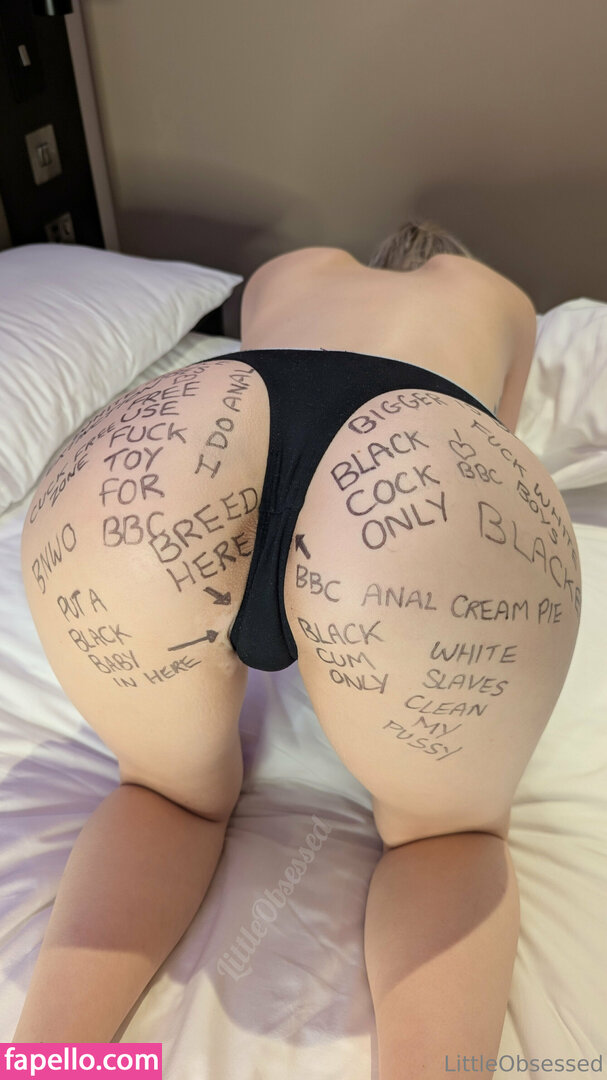 I DO ANAL
FREE USE
FUCK
TOY
FOR
BBC
CUCK FREE
ZONE
BNWO
BREED
HERE
PUT A
BLACK
BABY
IN HERE
BIGGER
BLACK
COCK
ONLY
FUCK WHITE
BOYS
♡
BBC
BLACK
BBC ANAL CREAM PIE
BLACK
CUM
ONLY
WHITE
SLAVES
CLEAN
MY
PUSSY
LittleObsessed
fapello.com
LittleObsessed